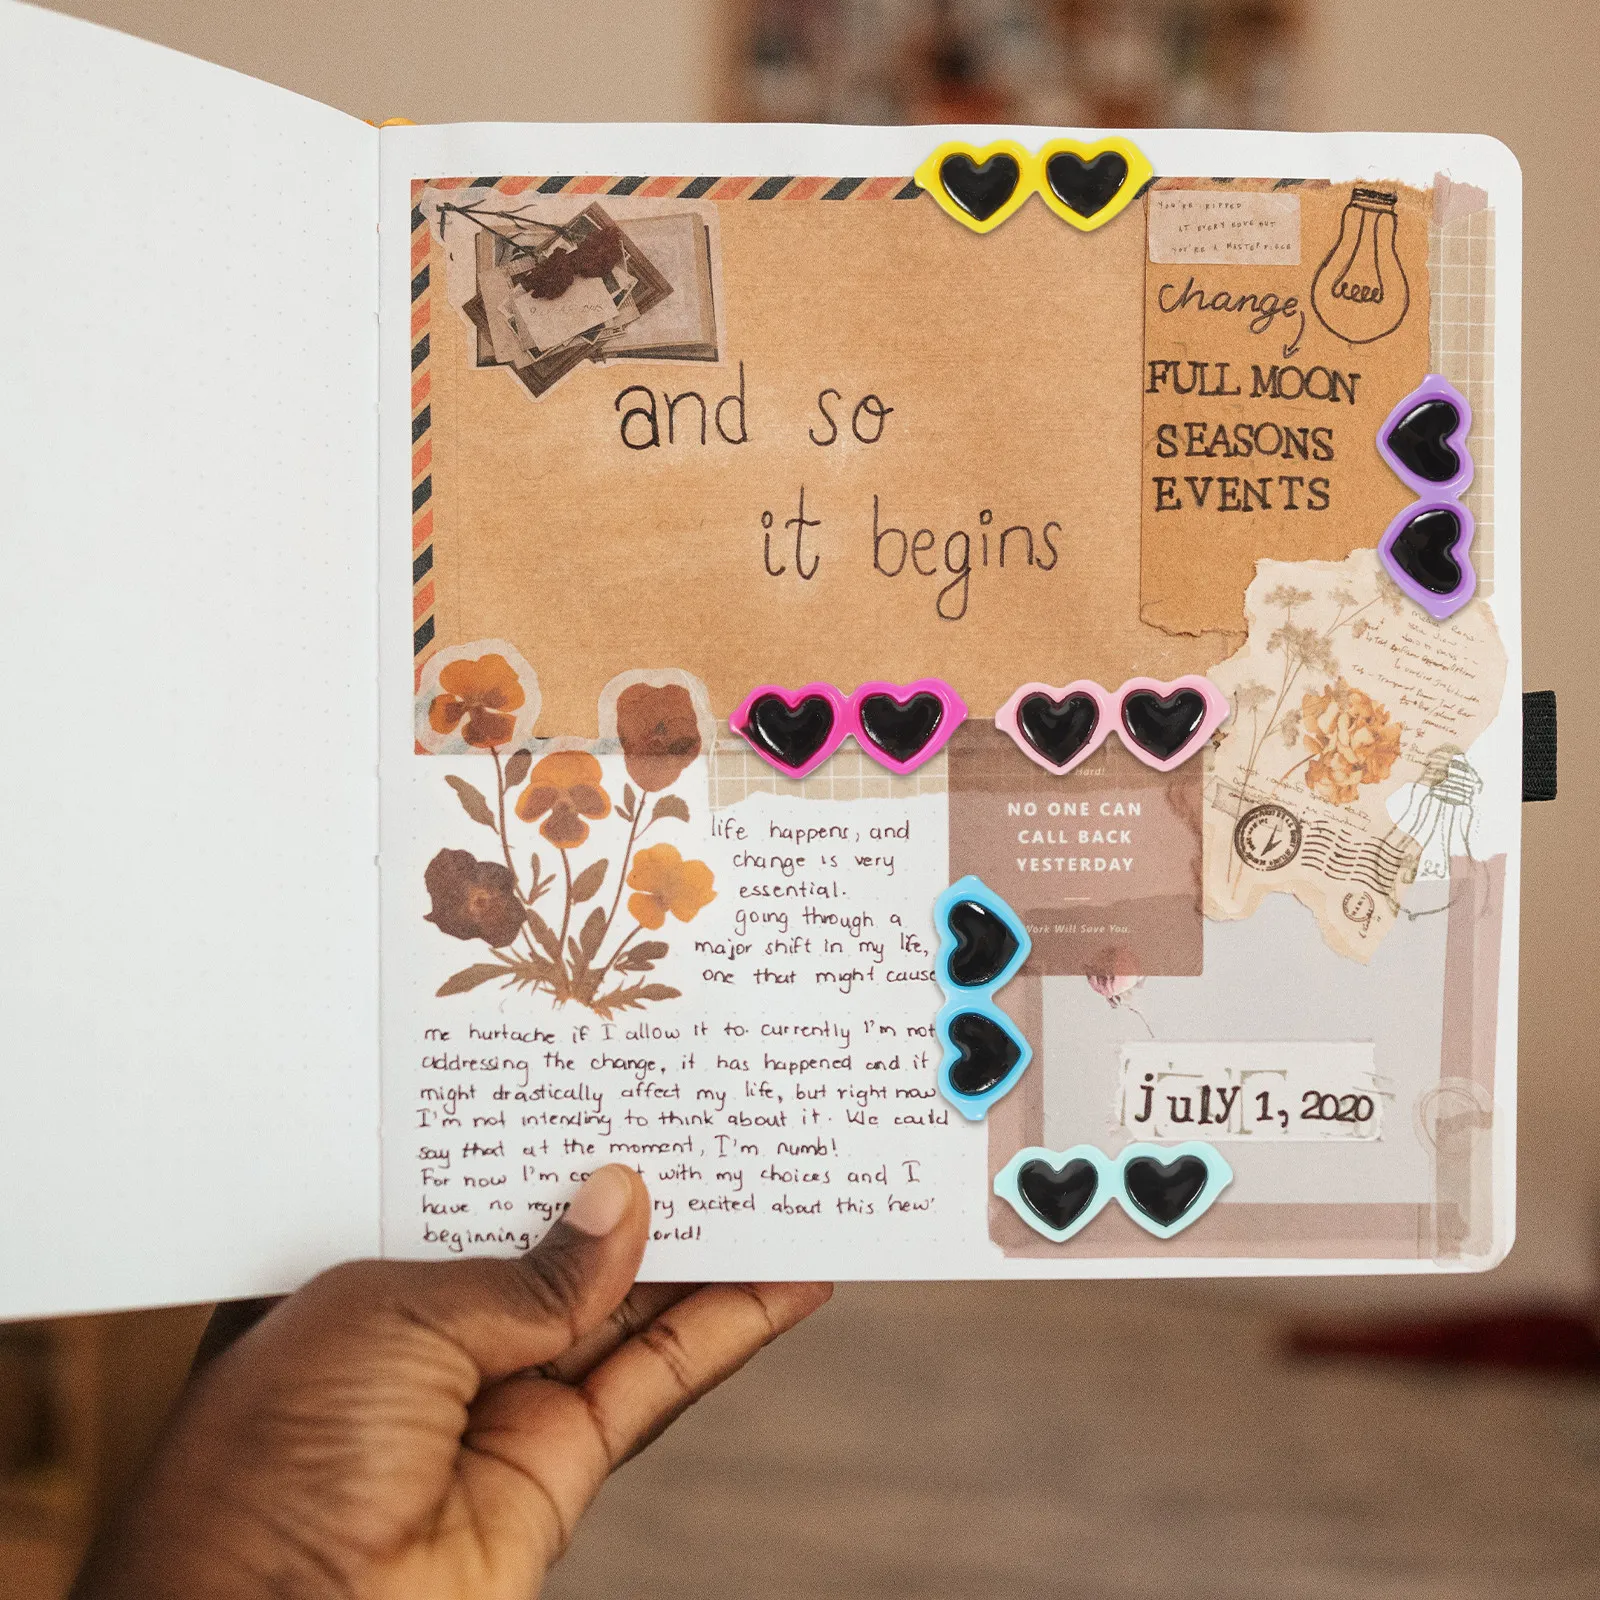 and so
it begins
YOU'RE RIPPED
AT EVERY EDGE BUT
YOU'RE A MASTERPIECE
change
FULL MOON
SEASONS
EVENTS
life happens, and
change is very
essential.
going through a
major shift in my life,
one that might cause
me hurtache if I allow it to. currently I'm not
addressing the change, it has happened and it
might drastically affect my life, but right now
I'm not intending to think about it. We could
say that at the moment, I'm numb!
For now I'm with my choices and I
have no excited about this 'new'
beginning.
Hard!
NO ONE CAN
CALL BACK
YESTERDAY
Work Will Save You.
july 1, 2020